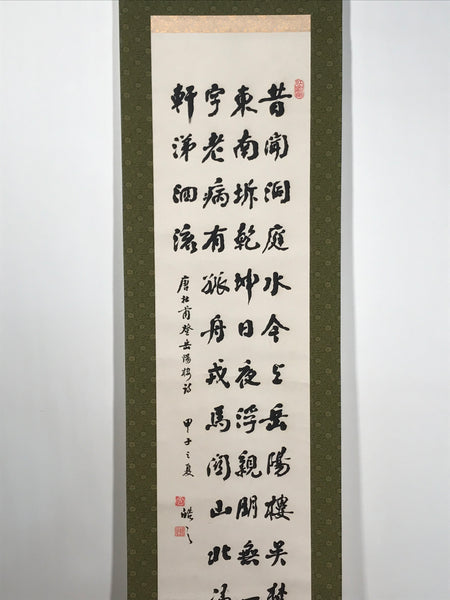 昔聞洞庭水今上岳陽樓吳楚
東南坼乾坤日夜浮親朋無一
字老病有孤舟戎馬關山北馮
軒涕泗流
唐杜甫登岳陽樓詩
甲子之夏